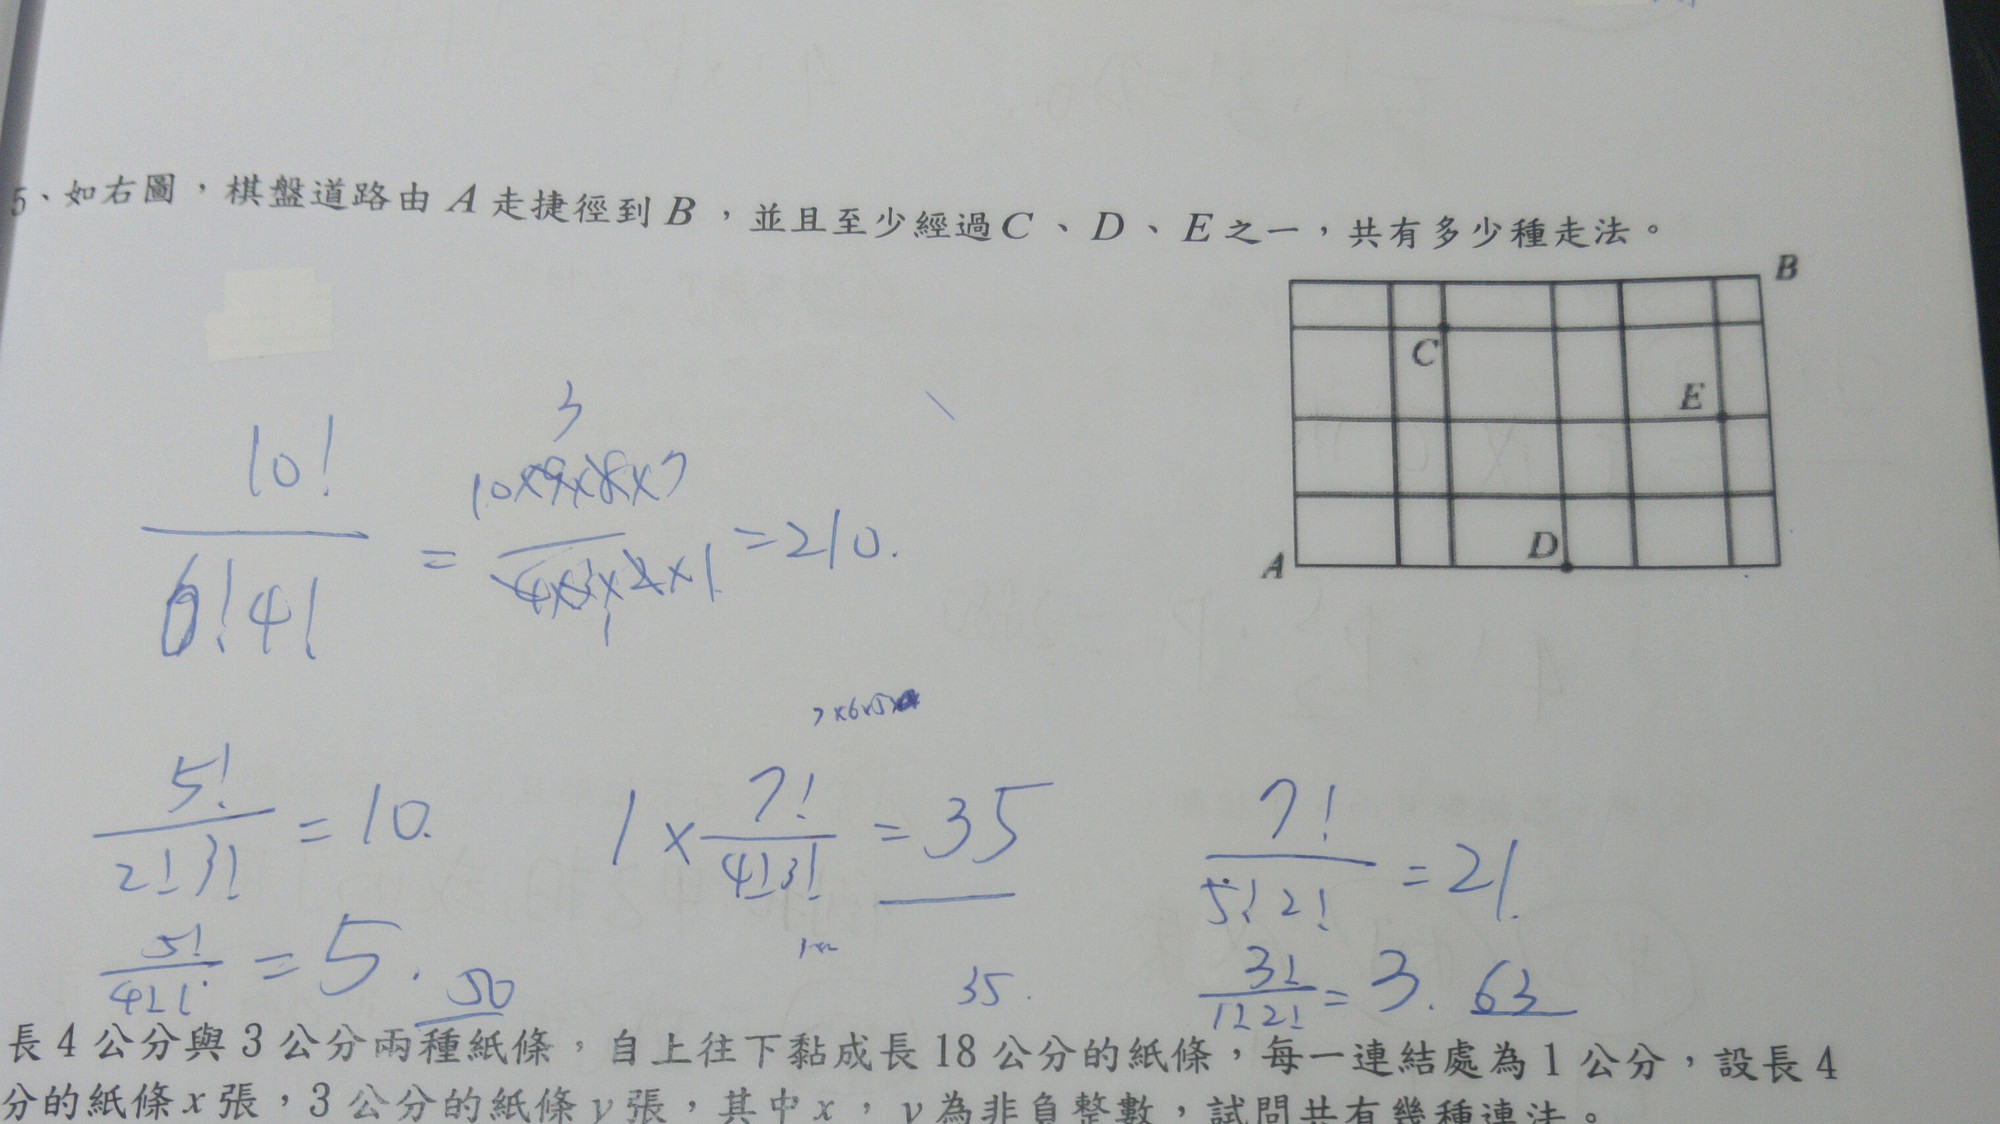 5、如右圖，棋盤道路由 A 走捷徑到 B，並且至少經過 C、D、E 之一，共有多少種走法。
B
C
E
D
A
10! / 6!4! = 10×9×8×7 / 4×3×2×1 = 210.
3
1
7×6×5
5! / 2!3! = 10.
1 × 7! / 4!3! = 35
7! / 5!2! = 21.
5! / 4!1! = 5. 50
35.
3! / 1!2! = 3. 63
長 4 公分與 3 公分兩種紙條，自上往下黏成長 18 公分的紙條，每一連結處為 1 公分，設長 4
分的紙條 x 張，3 公分的紙條 y 張，其中 x，y 為非負整數，試問共有幾種連法。